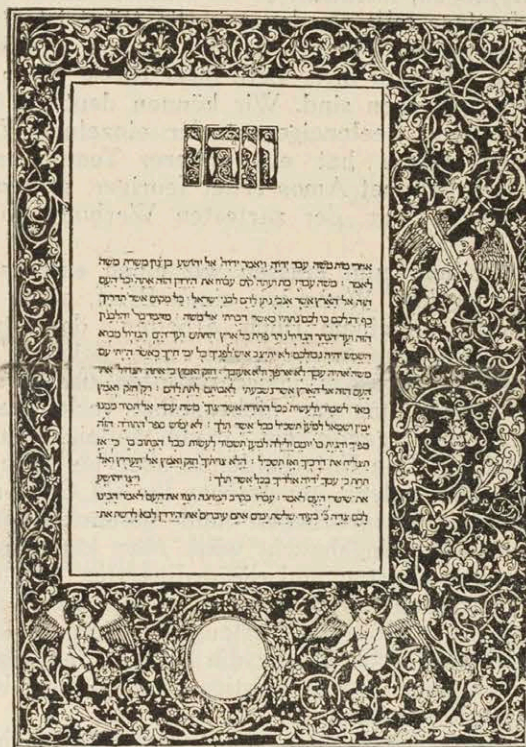 ויהי
אחרי מות משה עבד יהוה ויאמר יהוה אל יהושע בן נון משרת משה
לאמר : משה עבדי מת ועתה קום עבור את הירדן הזה אתה וכל העם
הזה אל הארץ אשר אנכי נתן להם לבני ישראל : כל מקום אשר תדרוך
כף רגלכם בו לכם נתתיו כאשר דברתי אל משה : מהמדבר והלבנון
הזה ועד הנהר הגדול נהר פרת כל ארץ החתים ועד הים הגדול מבוא
השמש יהיה גבולכם לא יתיצב איש לפניך כל ימי חייך כאשר הייתי עם
משה אהיה עמך לא ארפך ולא אעזבך : חזק ואמץ כי אתה תנחיל את
העם הזה אל הארץ אשר נשבעתי לאבותם לתת להם : רק חזק ואמץ
מאד לשמור ולעשות ככל התורה אשר צוך משה עבדי אל תסור ממנו
ימין ושמאל למען תשכיל בכל אשר תלך : לא ימוש ספר התורה הזה
מפיך והגית בו יומם ולילה למען תשמור לעשות ככל הכתוב בו כי אז
תצליח את דרכיך ואז תשכיל : הלא צויתיך חזק ואמץ אל תערץ ואל
תחת כי עמך יהוה אלהיך בכל אשר תלך : ויצו יהושע
את שטרי העם לאמר : עברו בקרב המחנה וצוו את העם לאמר הכינו
לכם צדה כי בעוד שלשת ימים אתם עוברים את הירדן לבוא לרשת את